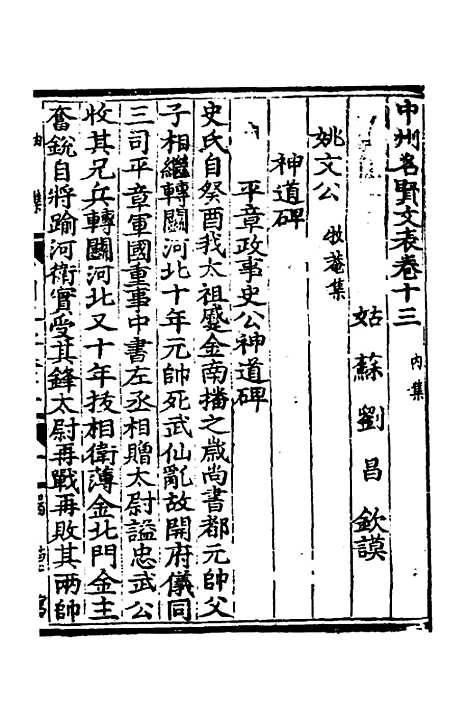 中州名賢文表卷十三 内集
姑蘇劉昌欽謨
姚文公 牧菴集
神道碑
平章政事史公神道碑
史氏自癸酉我太祖蹙金南播之歲尚書都元帥父
子相繼轉鬬河北十年元帥死武仙亂故開府儀同
三司平章軍國重事中書左丞相贈太尉謚忠武公
收其兄兵轉鬬河北又十年技相衛薄金北門金主
奮銳自將踰河衛實受其鋒太尉再戰再敗其兩帥